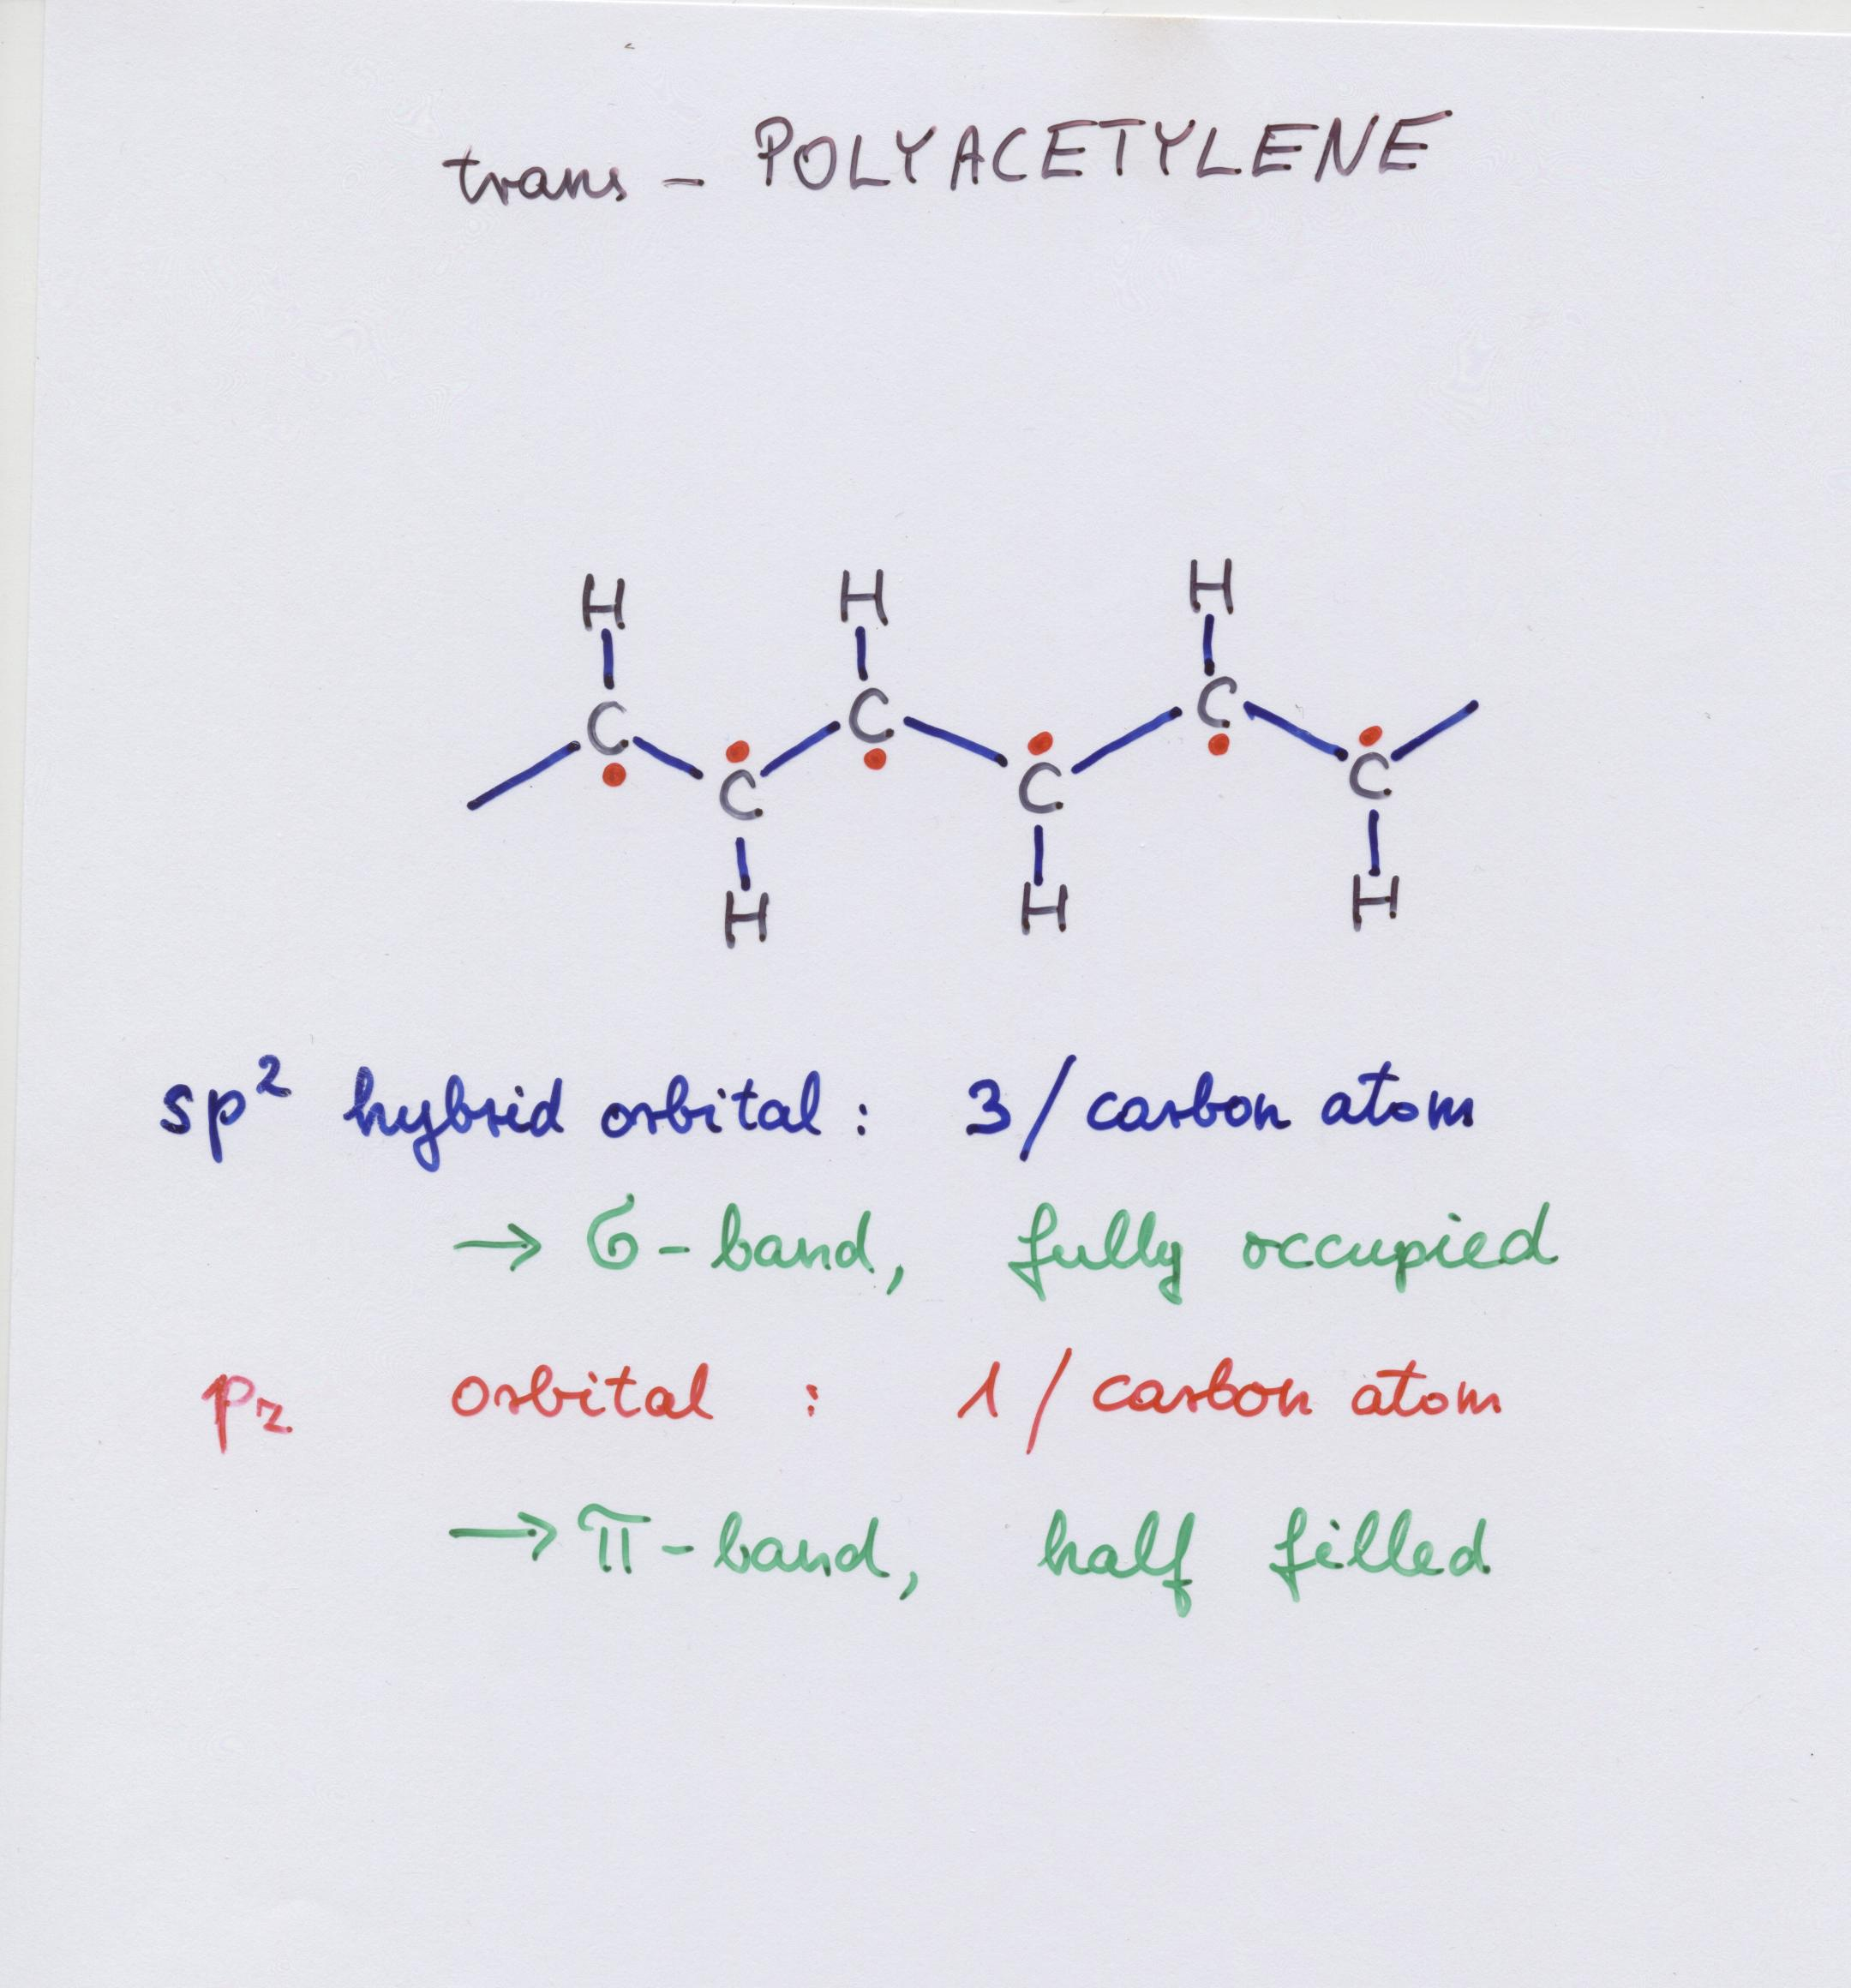 trans - POLYACETYLENE
H H H
C C C
C C C
H H H
sp² hybrid orbital : 3/carbon atom
→ σ-band, fully occupied
p_z orbital : 1/carbon atom
→ π-band, half filled